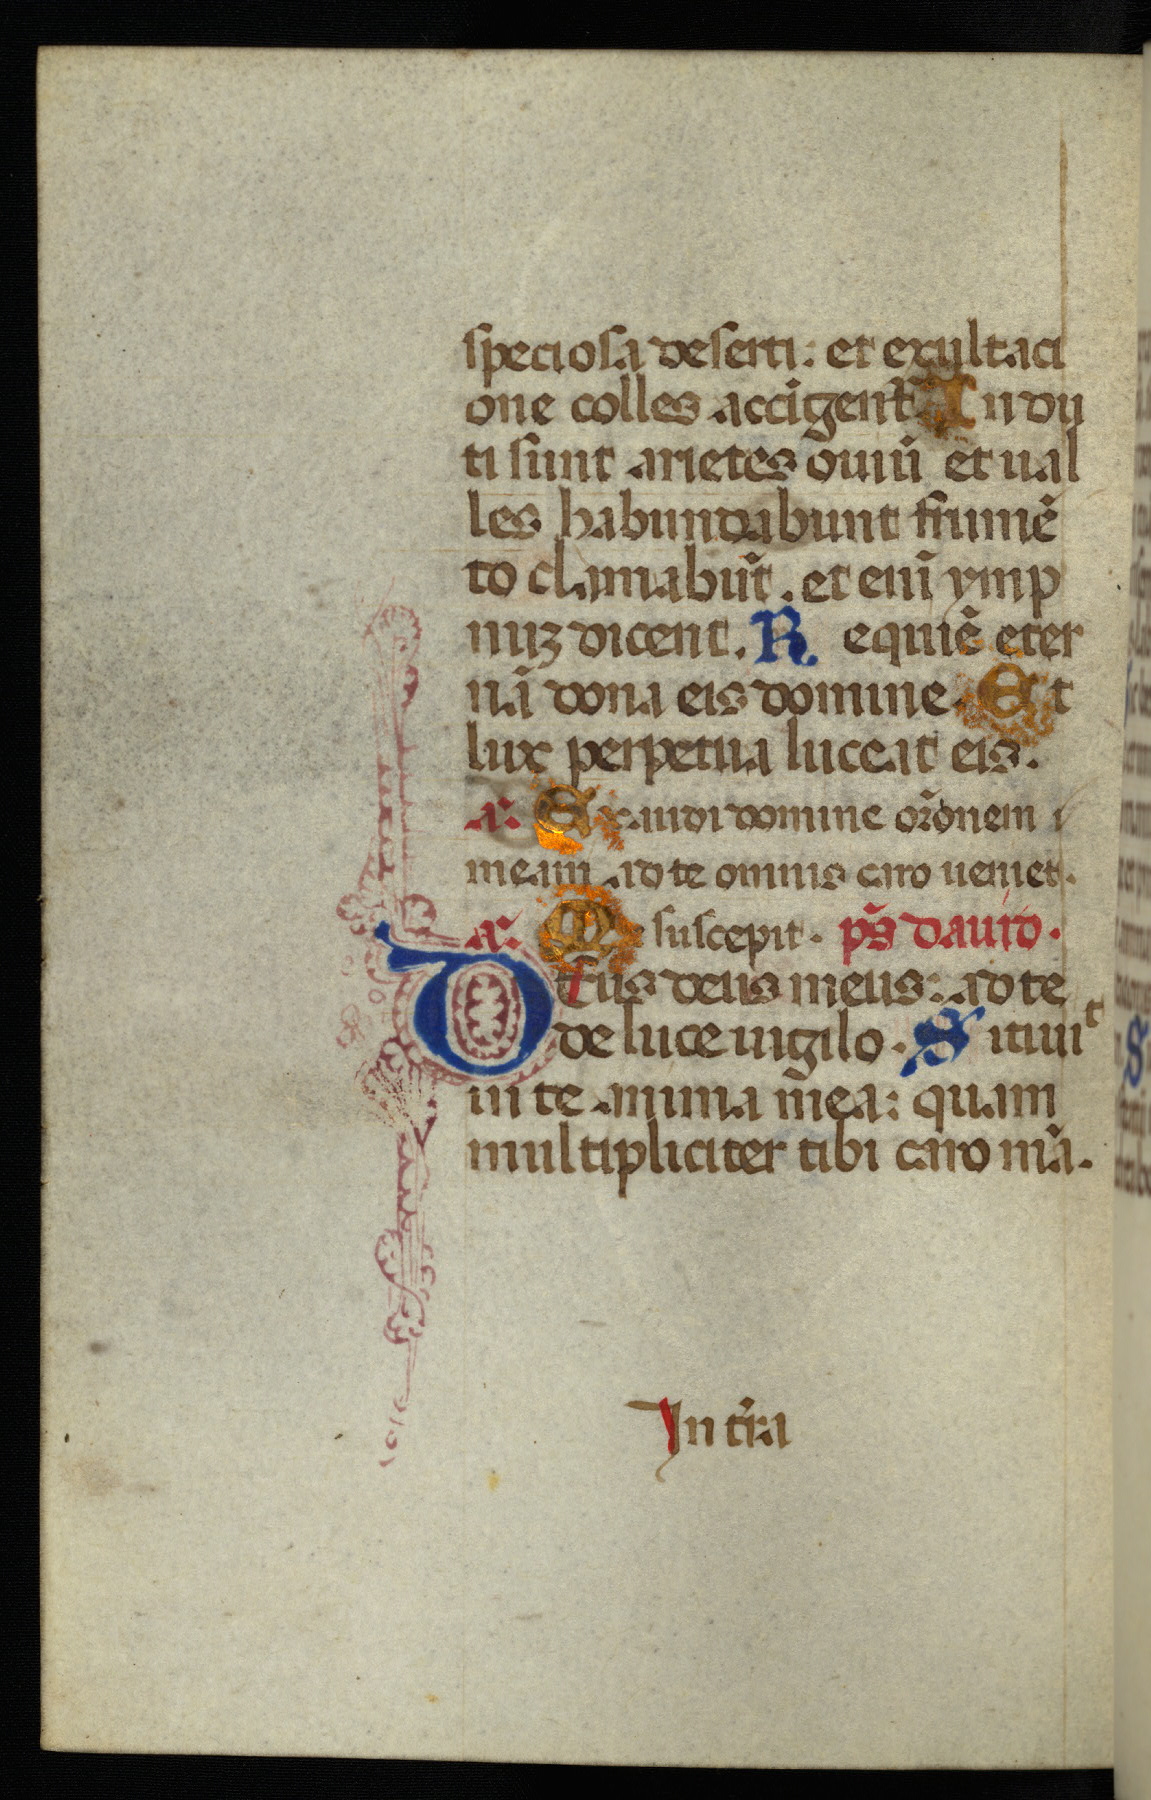 speciosa deserti: et exultaci
one colles accigent᷑ Indu
ti sunt arietes ouiũ et ual
les habundabunt frumẽ
to clamabũt. et enĩ ymp
nuʒ dicent. Requiẽ eter
nã dona eis domine. Et
lux perpetua luceat eis.
a. Exaudi domine or̃onem
meam ad te omnis caro ueniet.
a. Me suscepit. ps̃ dauid.
Deus deus meus: ad te
de luce uigilo. Sitiuit
in te anima mea: quam
multipliciter tibi caro mã.
In tr̃a